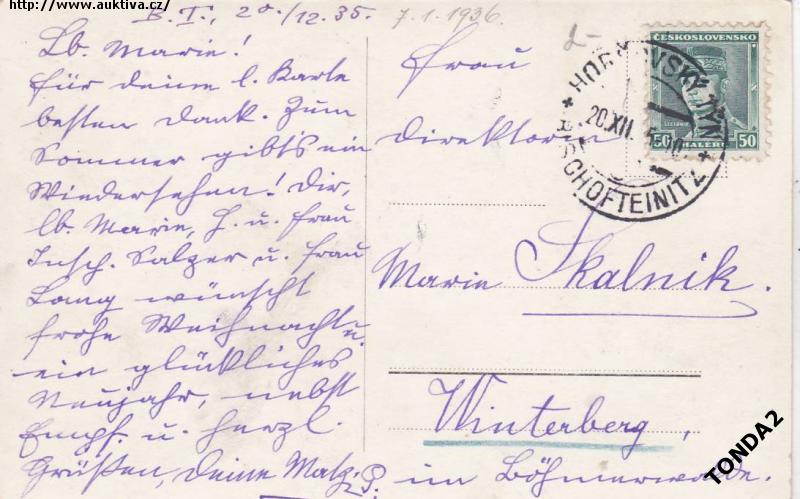 http://www.auktiva.cz/
B. T., 20./12. 35.
7.1.1936
Lb. Marie!
Für deine l. Karte
besten Dank. Zum
Sommer gibt's ein
Wiedersehen! Dir,
lb. Marie, H. u. Frau
Insp. Salzer u. Frau
Lang wünscht
frohe Weihnacht u.
ein glückliches
Neujahr, nebst
Empf. u. herzl.
Grüßen, deine
Frau
Direktorin
Marie Skalnik.
Winterberg,
im Böhmerwalde.
ČESKOSLOVENSKO
50 HALÉŘŮ 50
HORŠOVSKÝ TÝN
20.XII.
BISCHOFTEINITZ
TONDA2